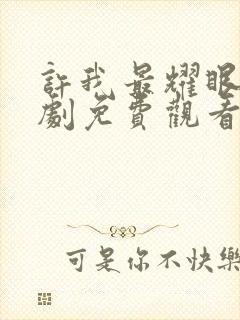 許我最耀眼
劇免費觀看
可是你不快樂